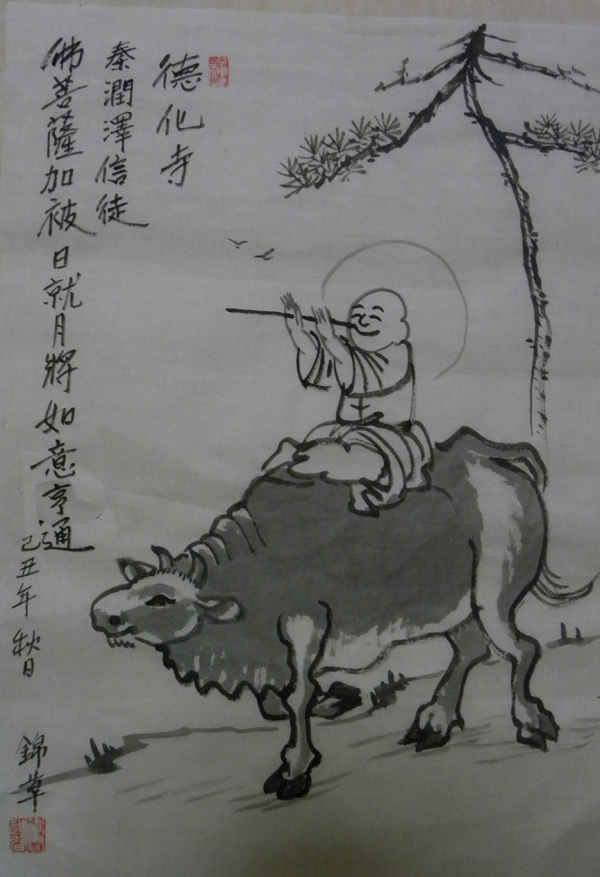 德化寺
秦潤澤信徒
佛菩薩加被日就月將如意亨通
己丑年 秋日
錦草